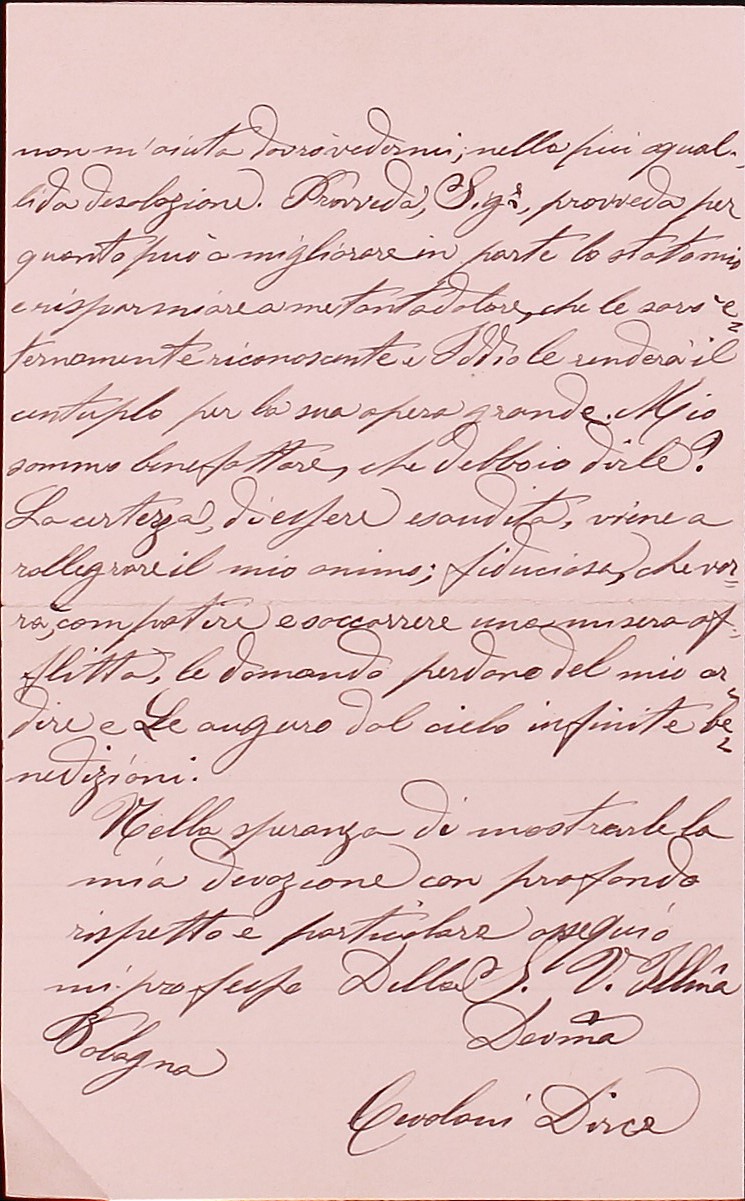 non m'aiuta dovrò vedermi, nella più squal-
lida desolazione. Provveda, S.gre, provveda per
quanto può a migliorare in parte lo stato mio
e risparmiare a me tanto dolore, che le sarò e=
ternamente riconoscente e Iddio le renderà il
centuplo per la sua opera grande. Mio
sommo benefattore, che debbo io dirle?
La certezza, di essere esaudita, viene a
rallegrare il mio animo; fiduciosa, che vor=
rà, compatire e soccorrere una misera af=
flitta, le domando perdono del mio ar=
dire e Le auguro dal cielo infinite be=
nedizioni.
Nella speranza di mostrarle la
mia devozione con profondo
rispetto e particolare ossequio
mi professo Della S. V. Illma
Bologna Devma
Cevolani Dirce